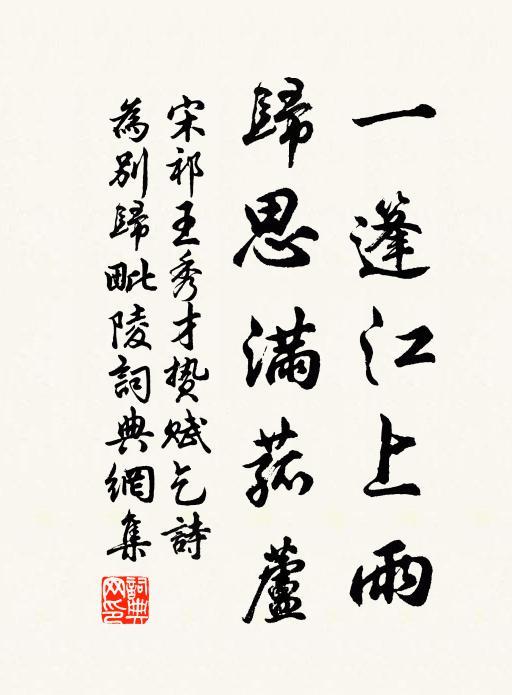 一篷江上雨
歸思滿菰蘆
宋祁王秀才贄賦乞詩
為別歸毗陵詞典網集
詞典網印